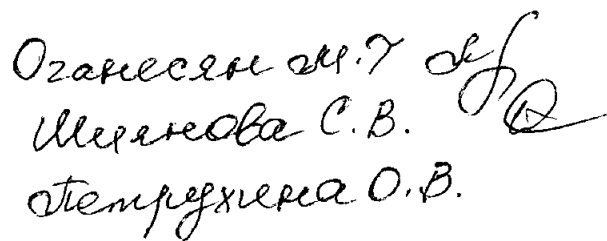 Оганесян М.Т
Шиянова С.В.
Петрухина О.В.